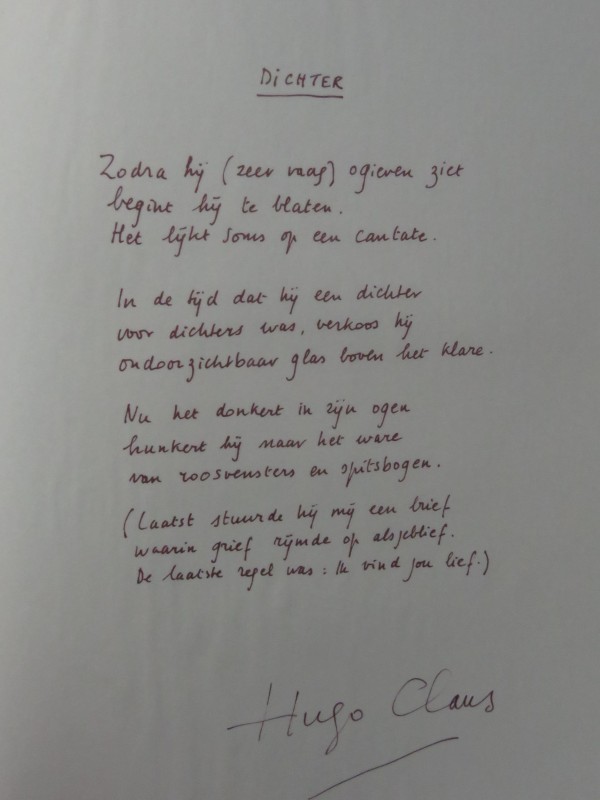 DICHTER
Zodra hij (zeer vaag) ogieven ziet
begint hij te blaten.
Het lijkt soms op een cantate.
In de tijd dat hij een dichter
voor dichters was, verkoos hij
ondoorzichtbaar glas boven het klare.
Nu het donkert in zijn ogen
hunkert hij naar het ware
van roosvensters en spitsbogen.
(Laatst stuurde hij mij een brief
waarin grief rijmde op alsjeblief.
De laatste regel was: Ik vind jou lief.)
Hugo Claus